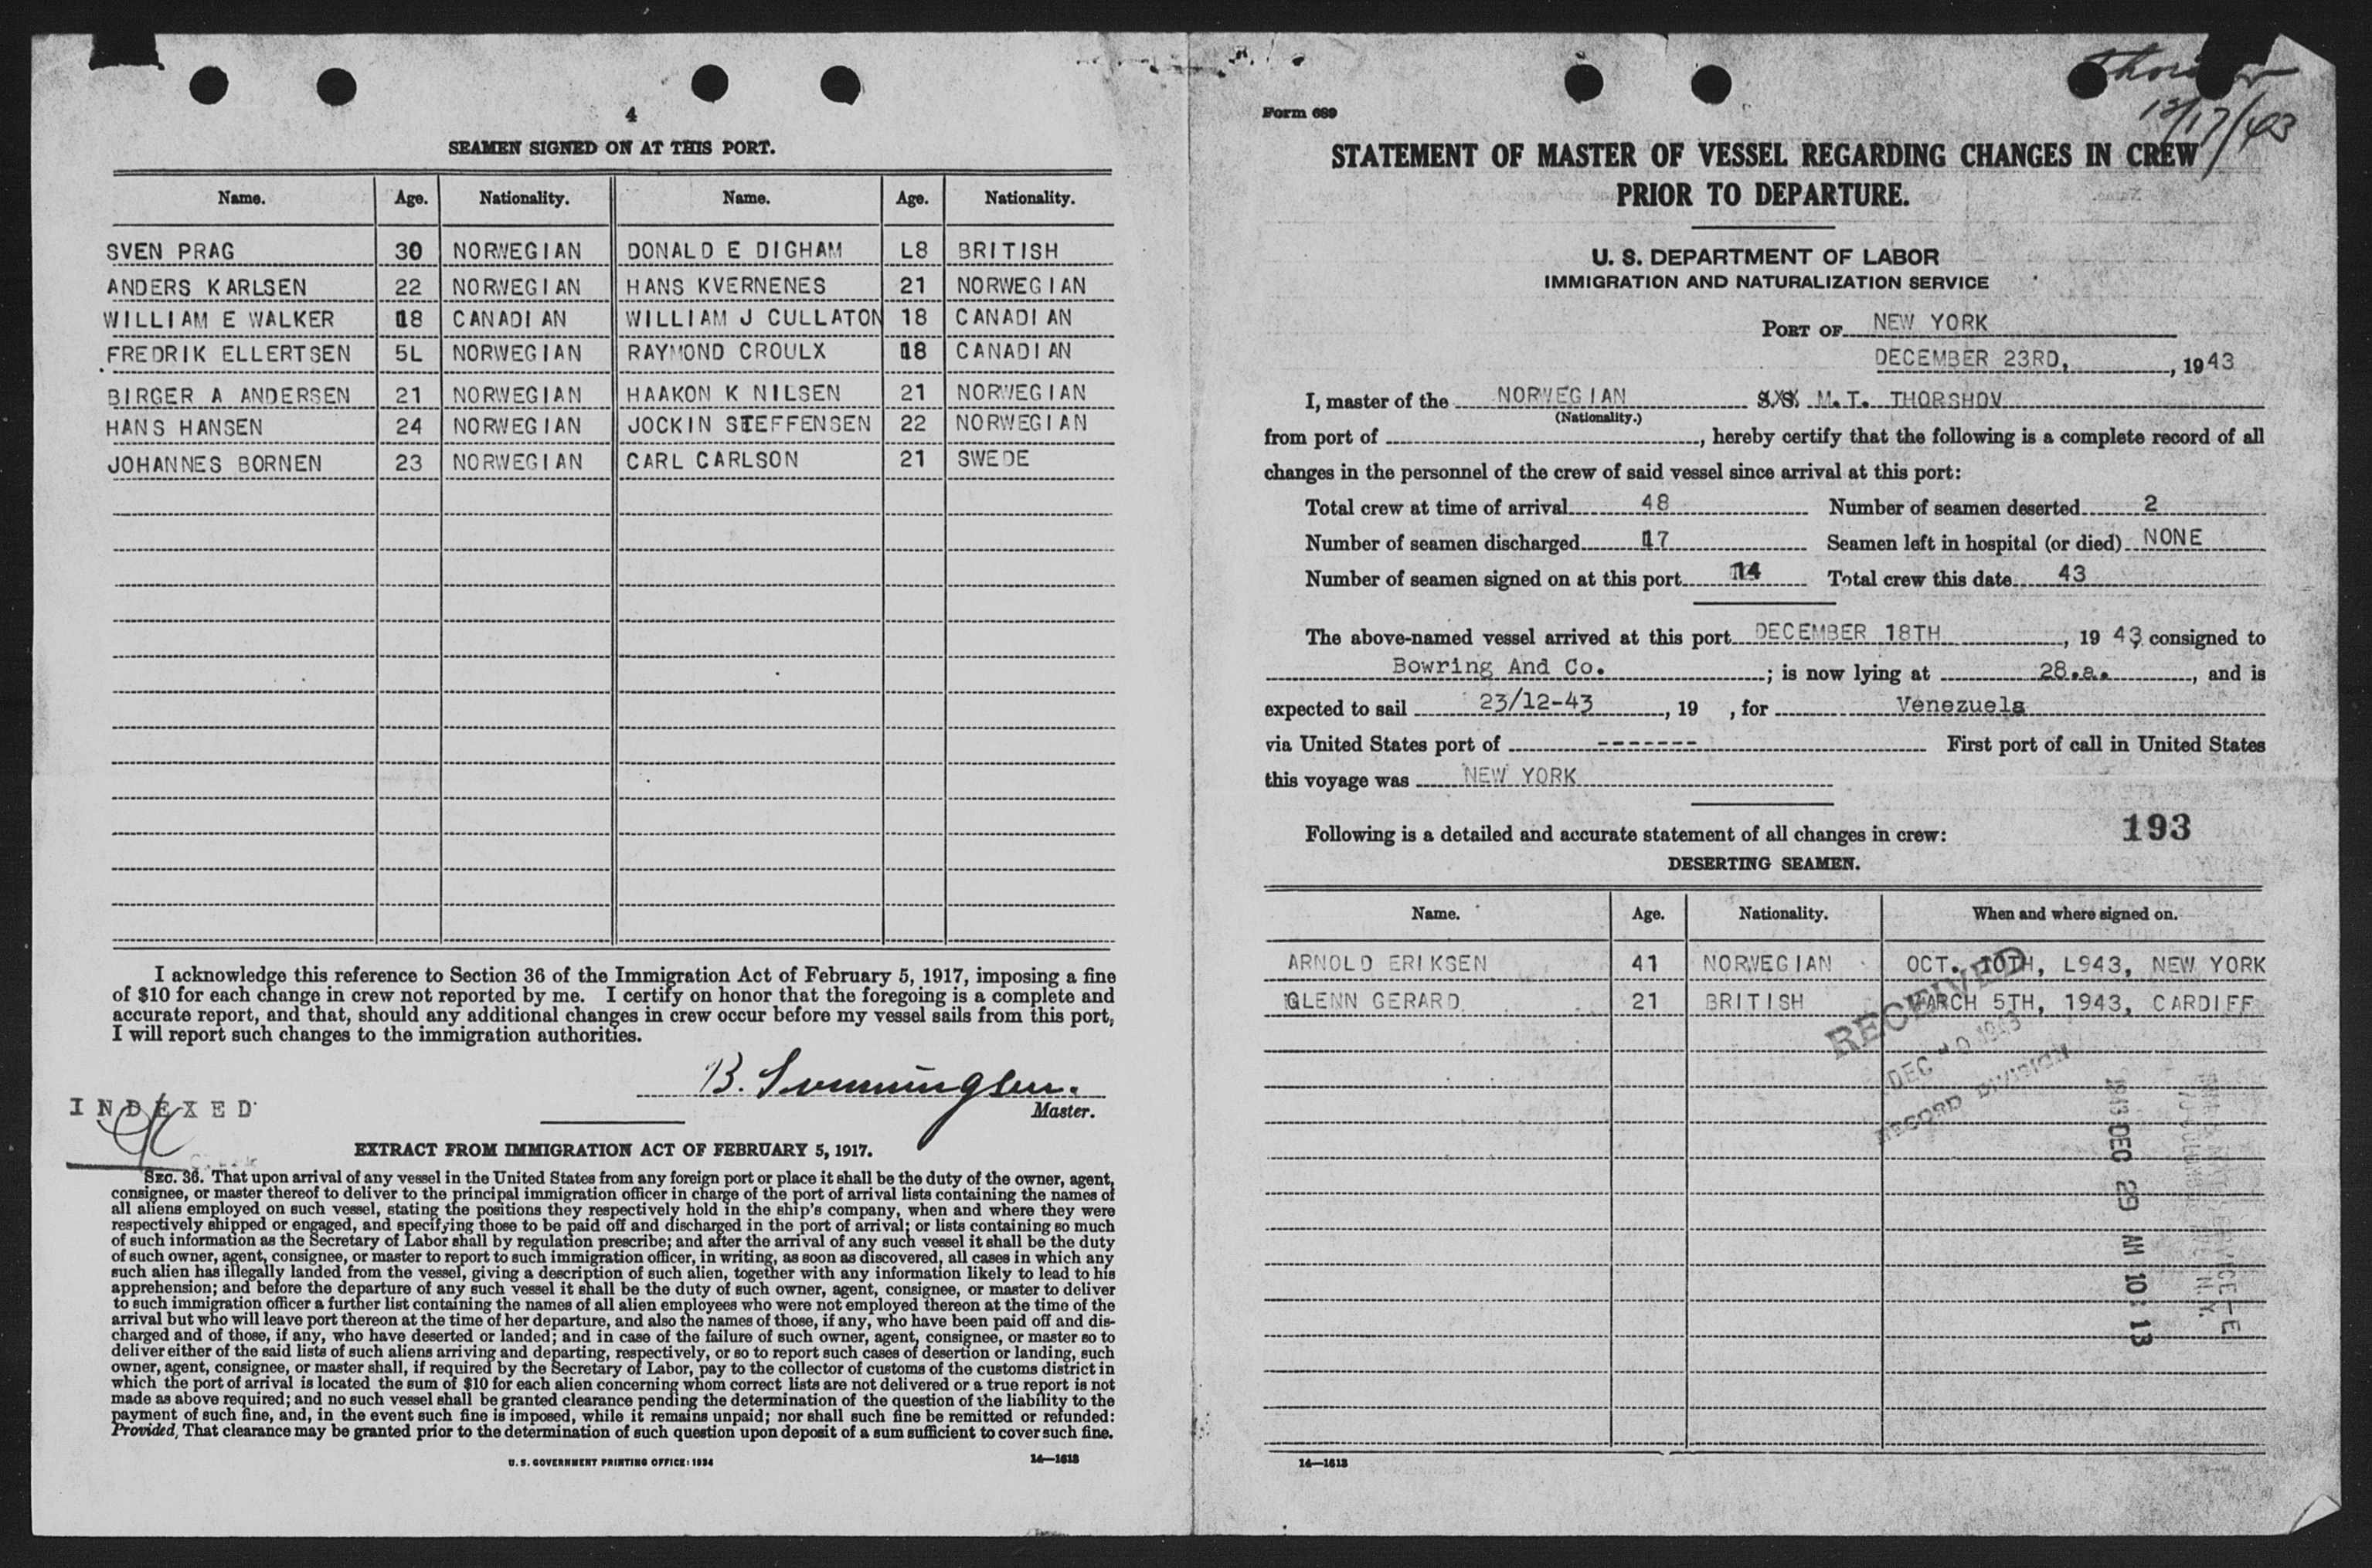 4
SEAMEN SIGNED ON AT THIS PORT.
Name. Age. Nationality. Name. Age. Nationality.
SVEN PRAG 30 NORWEGIAN DONALD E DIGHAM L8 BRITISH
ANDERS KARLSEN 22 NORWEGIAN HANS KVERNENES 21 NORWEGIAN
WILLIAM E WALKER 18 CANADIAN WILLIAM J CULLATON 18 CANADIAN
FREDRIK ELLERTSEN 5L NORWEGIAN RAYMOND CROULX 18 CANADIAN
BIRGER A ANDERSEN 21 NORWEGIAN HAAKON K NILSEN 21 NORWEGIAN
HANS HANSEN 24 NORWEGIAN JOCKIN STEFFENSEN 22 NORWEGIAN
JOHANNES BORNEN 23 NORWEGIAN CARL CARLSON 21 SWEDE
I acknowledge this reference to Section 36 of the Immigration Act of February 5, 1917, imposing a fine
of $10 for each change in crew not reported by me. I certify on honor that the foregoing is a complete and
accurate report, and that, should any additional changes in crew occur before my vessel sails from this port,
I will report such changes to the immigration authorities.
Master.
INDEXED
EXTRACT FROM IMMIGRATION ACT OF FEBRUARY 5, 1917.
SEC. 36. That upon arrival of any vessel in the United States from any foreign port or place it shall be the duty of the owner, agent,
consignee, or master thereof to deliver to the principal immigration officer in charge of the port of arrival lists containing the names of
all aliens employed on such vessel, stating the positions they respectively hold in the ship's company, when and where they were
respectively shipped or engaged, and specifying those to be paid off and discharged in the port of arrival; or lists containing so much
of such information as the Secretary of Labor shall by regulation prescribe; and after the arrival of any such vessel it shall be the duty
of such owner, agent, consignee, or master to report to such immigration officer, in writing, as soon as discovered, all cases in which any
such alien has illegally landed from the vessel, giving a description of such alien, together with any information likely to lead to his
apprehension; and before the departure of any such vessel it shall be the duty of such owner, agent, consignee, or master to deliver
to such immigration officer a further list containing the names of all alien employees who were not employed thereon at the time of the
arrival but who will leave port thereon at the time of her departure, and also the names of those, if any, who have been paid off and dis-
charged and of those, if any, who have deserted or landed; and in case of the failure of such owner, agent, consignee, or master so to
deliver either of the said lists of such aliens arriving and departing, respectively, or so to report such cases of desertion or landing, such
owner, agent, consignee, or master shall, if required by the Secretary of Labor, pay to the collector of customs of the customs district in
which the port of arrival is located the sum of $10 for each alien concerning whom correct lists are not delivered or a true report is not
made as above required; and no such vessel shall be granted clearance pending the determination of the question of the liability to the
payment of such fine, and, in the event such fine is imposed, while it remains unpaid; nor shall such fine be remitted or refunded:
Provided, That clearance may be granted prior to the determination of such question upon deposit of a sum sufficient to cover such fine.
U. S. GOVERNMENT PRINTING OFFICE: 1934 14—1613
12/17/43
Form 689
STATEMENT OF MASTER OF VESSEL REGARDING CHANGES IN CREW
PRIOR TO DEPARTURE.
U. S. DEPARTMENT OF LABOR
IMMIGRATION AND NATURALIZATION SERVICE
PORT OF NEW YORK
DECEMBER 23RD, , 1943
I, master of the NORWEGIAN S.S. M.T. THORSHOV
(Nationality.)
from port of , hereby certify that the following is a complete record of all
changes in the personnel of the crew of said vessel since arrival at this port:
Total crew at time of arrival 48 Number of seamen deserted 2
Number of seamen discharged 17 Seamen left in hospital (or died) NONE
Number of seamen signed on at this port 14 Total crew this date 43
The above-named vessel arrived at this port DECEMBER 18TH , 19 43 consigned to
Bowring And Co. ; is now lying at 28.a. , and is
expected to sail 23/12-43 , 19 , for Venezuela
via United States port of ------- First port of call in United States
this voyage was NEW YORK
Following is a detailed and accurate statement of all changes in crew: 193
DESERTING SEAMEN.
Name. Age. Nationality. When and where signed on.
ARNOLD ERIKSEN 41 NORWEGIAN OCT. 10TH, L943, NEW YORK
GLENN GERARD 21 BRITISH MARCH 5TH, 1943, CARDIFF
RECEIVED
DEC 30 1943
RECORD DIVISION
1943 DEC 29 AM 10:13
14—1613